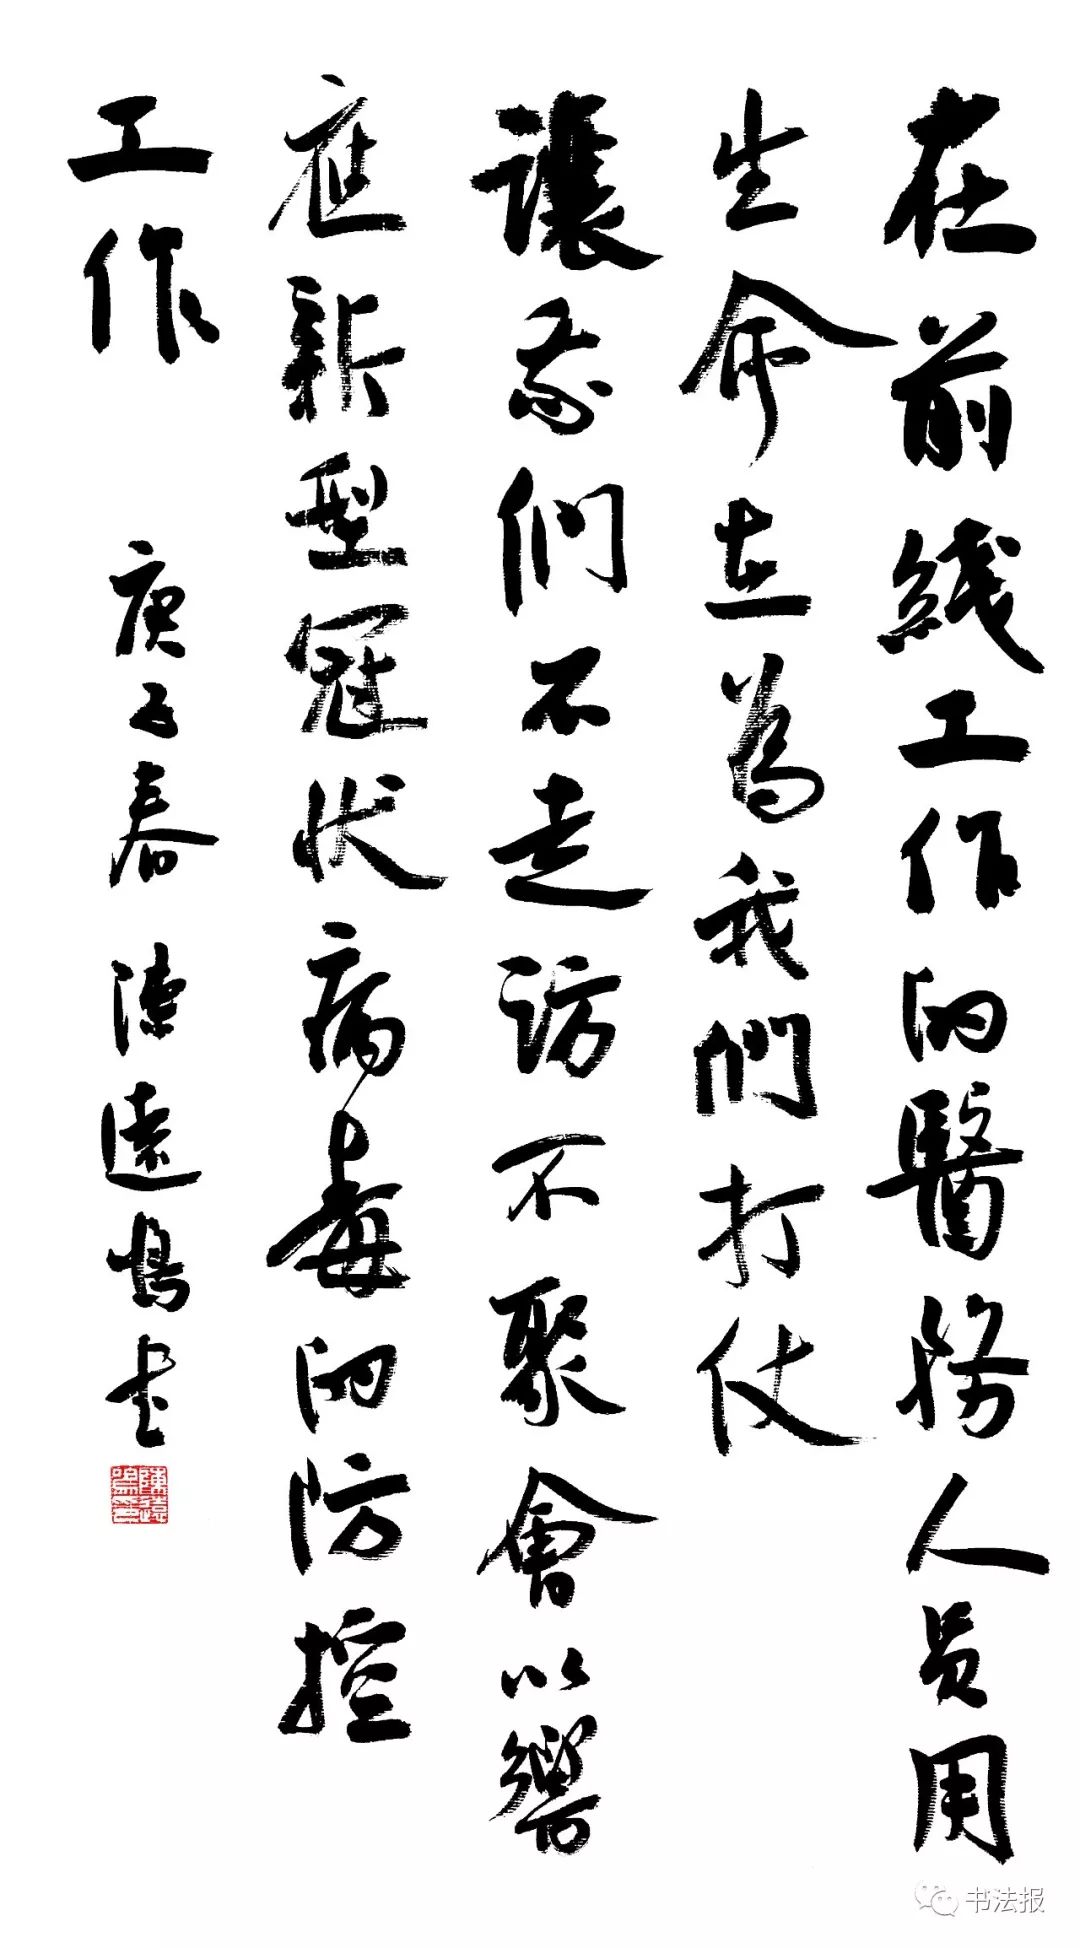 在前綫工作的醫務人员用
生命在為我們打仗
讓我們不走訪不聚會以響
應新型冠状病毒的防控
工作 庚子春 陳遠書
书法报